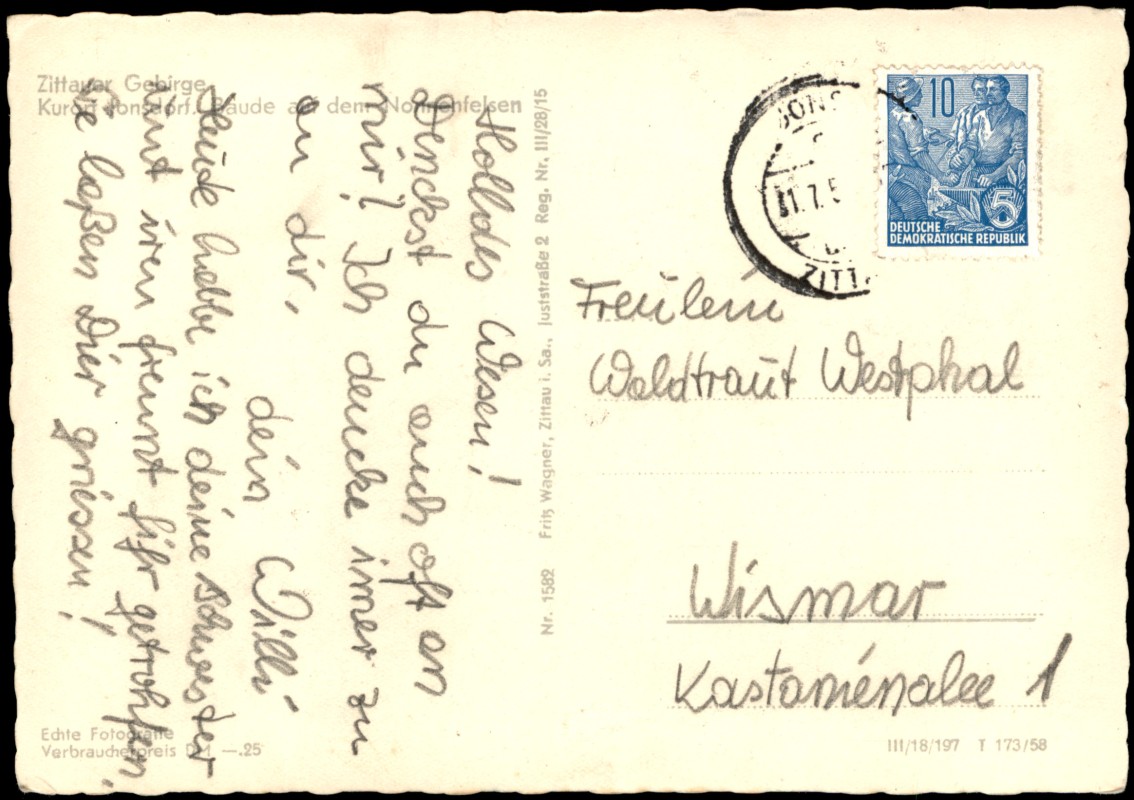 Zittauer Gebirge
Kurort Jonsdorf. Baude auf dem Nonnenfelsen
Holldes Wesen!
Denckst du auch oft an
mir? Ich dencke imer zu
an dir,
dein Willi
Heude habbe ich deine schwester
mit iren freunt
getrohfen,
Sie laßen Dier griessen!
Echte Fotografie
Verbraucherpreis DM —.25
Nr. 1582 Fritz Wagner, Zittau i. Sa., Juststraße 2 Reg. Nr. III/28/15
JONS
31.7.5
ZITT
10
5
DEUTSCHE
DEMOKRATISCHE REPUBLIK
Freulein
Waldtraut Westphal
Wismar
Kastanienalee 1
III/18/197 T 173/58